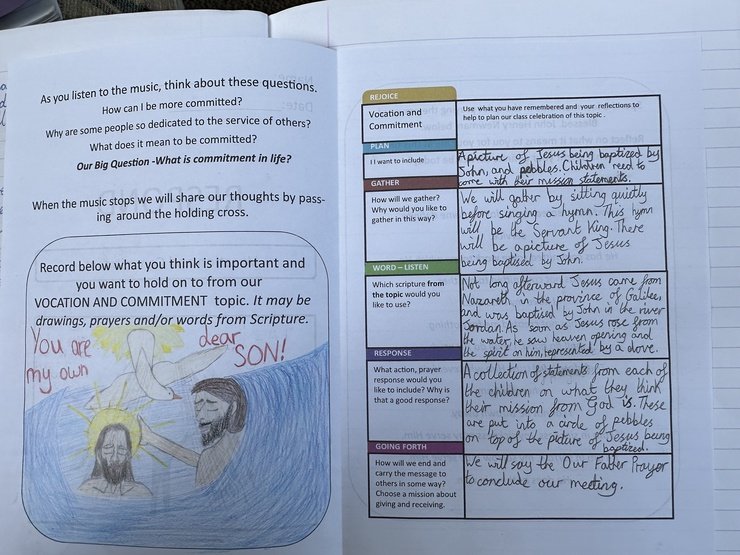 As you listen to the music, think about these questions.
How can I be more committed?
Why are some people so dedicated to the service of others?
What does it mean to be committed?
Our Big Question -What is commitment in life?
When the music stops we will share our thoughts by pass-
ing around the holding cross.
Record below what you think is important and
you want to hold on to from our
VOCATION AND COMMITMENT topic. It may be
drawings, prayers and/or words from Scripture.
You are
my own
dear
SON!
REJOICE
Vocation and
Commitment
Use what you have remembered and your reflections to
help to plan our class celebration of this topic.
PLAN
I I want to include
A picture of Jesus being baptized by
John, and pebbles. Children need to
come with their mission statements.
GATHER
How will we gather?
Why would you like to
gather in this way?
We will gather by sitting quietly
before singing a hymn. This hymn
will be the Servant King. There
will be a picture of Jesus
being baptised by John.
WORD – LISTEN
Which scripture from
the topic would you
like to use?
Not long afterward Jesus came from
Nazareth, in the province of Galilee,
and was baptised by John in the river
Jordan. As soon as Jesus rose from
the water, he saw heaven opening and
the spirit on him, represented by a dove.
RESPONSE
What action, prayer
response would you
like to include? Why is
that a good response?
A collection of statements from each of
the children on what they think
their mission from God is. These
are put into a circle of pebbles
on top of the picture of Jesus being
baptized.
GOING FORTH
How will we end and
carry the message to
others in some way?
Choose a mission about
giving and receiving.
We will say the Our Father Prayer
to conclude our meeting.